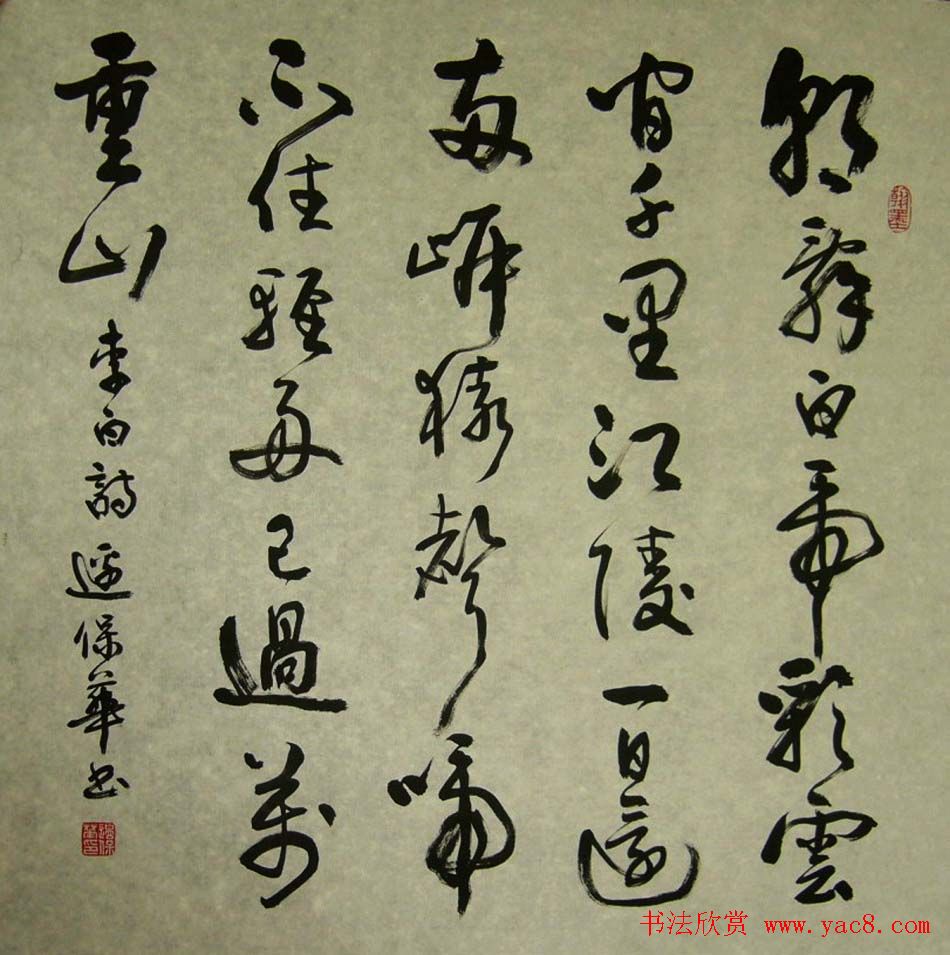 翰墨
朝辭白帝彩雲
間千里江陵一日還
兩岸猿聲啼
不住輕舟已過萬
重山
李白詩 保華書
书法欣赏 www.yac8.com